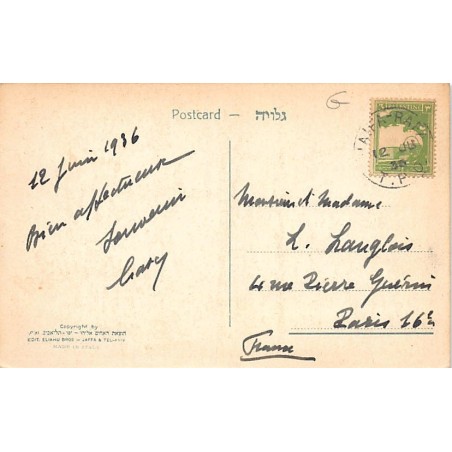 Postcard – גלויה
12 Juin 1936
Bien affectueux
Souvenir
Monsieur et Madame
L. Langlois
4 rue Pierre Guérin
Paris 16e
France
Copyright by
EDIT. ELIAHU BROS – JAFFA & TEL-AVIV
MADE IN ITALY